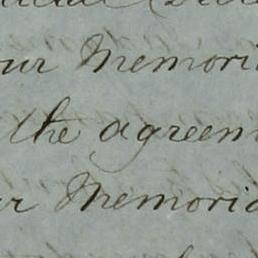 our Memori
the agreem
ur Memoria